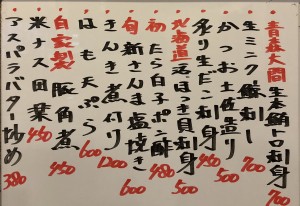 青森大間生本鮪トロ刺身 700
生ミンク鯨刺し 700
かつお土佐造り 500
炙り生だこ刺身 450
北海道活ほっき貝刺身 500
初たら白子ポン酢 480
旬新さんま塩焼き 600
きんき煮付り 1200
はも天ぷら 600
自家製豚角煮 450
米ナス田楽 450
アスパラバター炒め 380